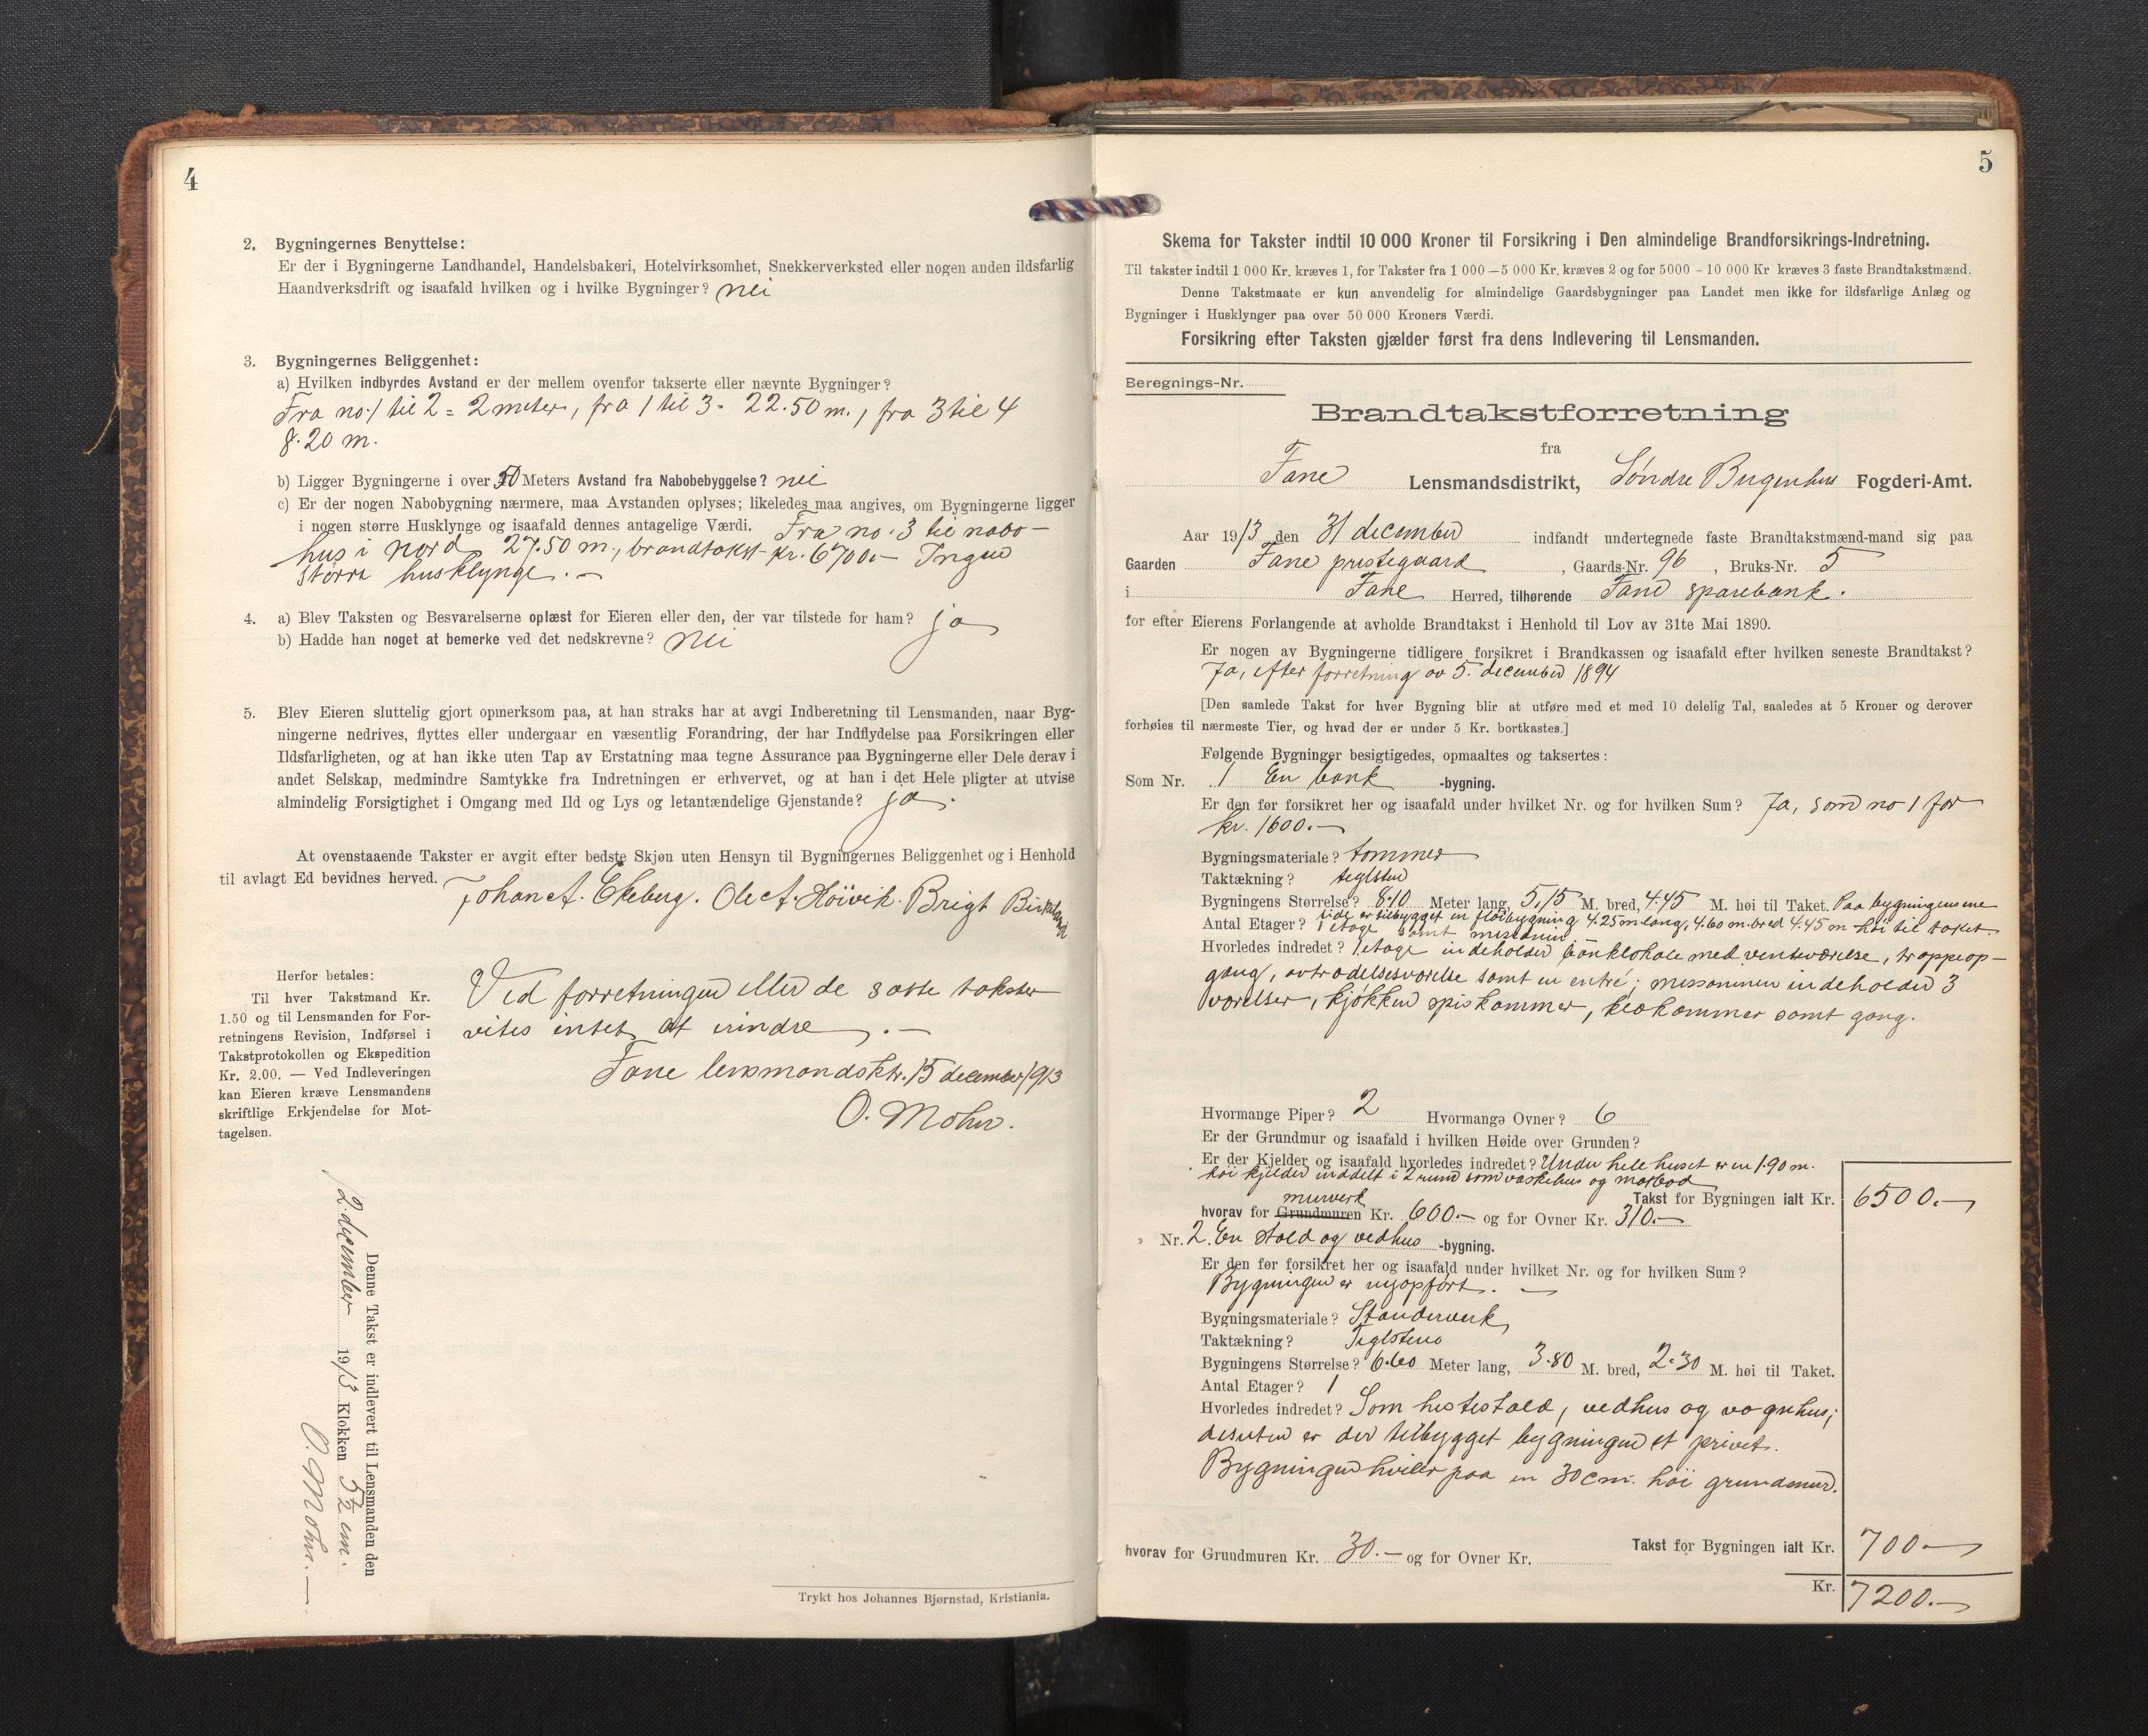 4
2. Bygningernes Benyttelse:
Er der i Bygningerne Landhandel, Handelsbakeri, Hotelvirksomhet, Snekkerverksted eller nogen anden ildsfarlig
Haandverksdrift og isaafald hvilken og i hvilke Bygninger? nei
3. Bygningernes Beliggenhet:
a) Hvilken indbyrdes Avstand er der mellem ovenfor takserte eller nævnte Bygninger?
Fra no. 1 til 2 = 2 meter, fra 1 til 3 - 22.50 m., fra 3 til 4
8.20 m.
b) Ligger Bygningerne i over 50 Meters Avstand fra Nabobebyggelse? nei
c) Er der nogen Nabobygning nærmere, maa Avstanden oplyses; likeledes maa angives, om Bygningerne ligger
i nogen større Husklynge og isaafald dennes antagelige Værdi. Fra no. 3 til nabo-
hus i nord 27.50 m., brandtakst kr. 6700.- Ingen
større husklynge.-
4. a) Blev Taksten og Besvarelserne oplæst for Eieren eller den, der var tilstede for ham? ja
b) Hadde han noget at bemerke ved det nedskrevne? nei
5. Blev Eieren sluttelig gjort opmerksom paa, at han straks har at avgi Indberetning til Lensmanden, naar Byg-
ningerne nedrives, flyttes eller undergaar en væsentlig Forandring, der har Indflydelse paa Forsikringen eller
Ildsfarligheten, og at han ikke uten Tap av Erstatning maa tegne Assurance paa Bygningerne eller Dele derav i
andet Selskap, medmindre Samtykke fra Indretningen er erhvervet, og at han i det Hele pligter at utvise
almindelig Forsigtighet i Omgang med Ild og Lys og letantændelige Gjenstande? ja.
At ovenstaaende Takster er avgit efter bedste Skjøn uten Hensyn til Bygningernes Beliggenhet og i Henhold
til avlagt Ed bevidnes herved.
Johan A. Ekeberg. Ole A. Höivik. Brigt Birkeland
Herfor betales:
Til hver Takstmand Kr.
1.50 og til Lensmanden for For-
retningens Revision, Indførsel i
Takstprotokollen og Ekspedition
Kr. 2.00. — Ved Indleveringen
kan Eieren kræve Lensmandens
skriftlige Erkjendelse for Mot-
tagelsen.
Ved forretningen eller de satte takster
vites intet at erindre.-
Fane lensmandsktr. 15 december 1913
O. Mohr.
Denne Takst er indlevert til Lensmanden den
12. december 1913 Klokken 5½ em.
O. Mohr.-
Trykt hos Johannes Bjørnstad, Kristiania.
5
Skema for Takster indtil 10 000 Kroner til Forsikring i Den almindelige Brandforsikrings-Indretning.
Til takster indtil 1 000 Kr. kræves 1, for Takster fra 1 000 — 5 000 Kr. kræves 2 og for 5000 - 10 000 Kr kræves 3 faste Brandtakstmænd.
Denne Takstmaate er kun anvendelig for almindelige Gaardsbygninger paa Landet men ikke for ildsfarlige Anlæg og
Bygninger i Husklynger paa over 50 000 Kroners Værdi.
Forsikring efter Taksten gjælder først fra dens Indlevering til Lensmanden.
Beregnings-Nr.
Brandtakstforretning
fra
Fane Lensmandsdistrikt, Søndre Bergenhus Fogderi-Amt.
Aar 1913 den 31 december indfandt undertegnede faste Brandtakstmænd-mand sig paa
Gaarden Fane prestegaard, Gaards-Nr. 96, Bruks-Nr. 5
i Fane Herred, tilhørende Fane sparebank.
for efter Eierens Forlangende at avholde Brandtakst i Henhold til Lov av 31te Mai 1890.
Er nogen av Bygningerne tidligere forsikret i Brandkassen og isaafald efter hvilken seneste Brandtakst?
Ja, efter forretning av 5. december 1894
[Den samlede Takst for hver Bygning blir at utføre med et med 10 delelig Tal, saaledes at 5 Kroner og derover
forhøies til nærmeste Tier, og hvad der er under 5 Kr. bortkastes.]
Følgende Bygninger besigtigedes, opmaaltes og taksertes:
Som Nr. 1 En bank -bygning.
Er den før forsikret her og isaafald under hvilket Nr. og for hvilken Sum? Ja, som no 1 for
kr. 1600.-
Bygningsmateriale? tømmer
Taktækning? teglsten
Bygningens Størrelse? 8.10 Meter lang, 5,15 M. bred, 4.45 M. høi til Taket. Paa bygningens ene
side er tilbygget en fløibygning 4.25 m lang, 4.60 m. bred 4.45 m høi til taket.
Antal Etager? 1 etage samt messanin
Hvorledes indredet? 1 etage indeholder banklokale med venteværelse, trappeop-
gang, avtrædelsesværelse samt en entré; messaninen indeholder 3
værelser, kjøkken spiskammer, klækammer samt gang.
Hvormange Piper? 2 Hvormange Ovner? 6
Er der Grundmur og isaafald i hvilken Høide over Grunden?
Er der Kjelder og isaafald hvorledes indredet? Under hele huset er en 1.90 m.
høi kjelder inddelt i 2 rum som vaskehus og matbod
Takst for Bygningen ialt Kr. 6500.-
murverk
hvorav for Grundmuren Kr. 600.- og for Ovner Kr. 310.-
Nr. 2. En stald og vedhus -bygning.
Er den før forsikret her og isaafald under hvilket Nr. og for hvilken Sum?
Bygningen er nyopført.-
Bygningsmateriale? Standerverk
Taktækning? Teglsten
Bygningens Størrelse? 6.60 Meter lang, 3.80 M. bred, 2.30 M. høi til Taket.
Antal Etager? 1
Hvorledes indredet? Som hestestald, vedhus og vognhus;
desuten er der tilbygget bygningen et privet.
Bygningen hviler paa en 30 cm. høi grundmur.
hvorav for Grundmuren Kr. 30.- og for Ovner Kr. Takst for Bygningen ialt Kr. 700.-
Kr. 7200.-